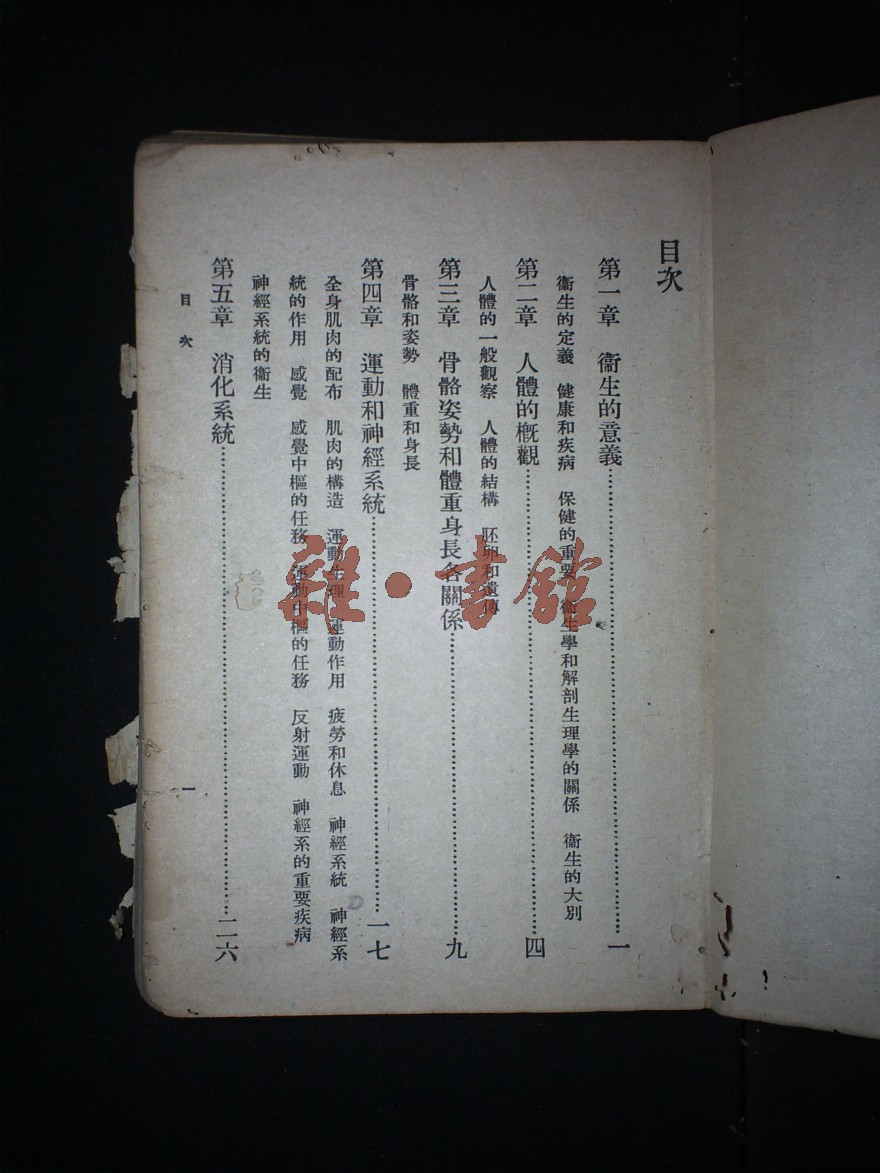 目次
第一章　衞生的意義……一
衞生的定義　健康和疾病　保健的重要　衞生學和解剖生理學的關係　衞生的大別
第二章　人體的槪觀……四
人體的一般觀察　人體的結構　胚卵和遺傳
第三章　骨骼姿勢和體重身長各關係……九
骨骼和姿勢　體重和身長
第四章　運動和神經系統……一七
全身肌肉的配布　肌肉的構造　運動生理　運動作用　疲勞和休息　神經系統　神經系
統的作用　感覺　感覺中樞的任務　運動中樞的任務　反射運動　神經系的重要疾病
神經系統的衞生
第五章　消化系統……二六
目次
一
雜·書館